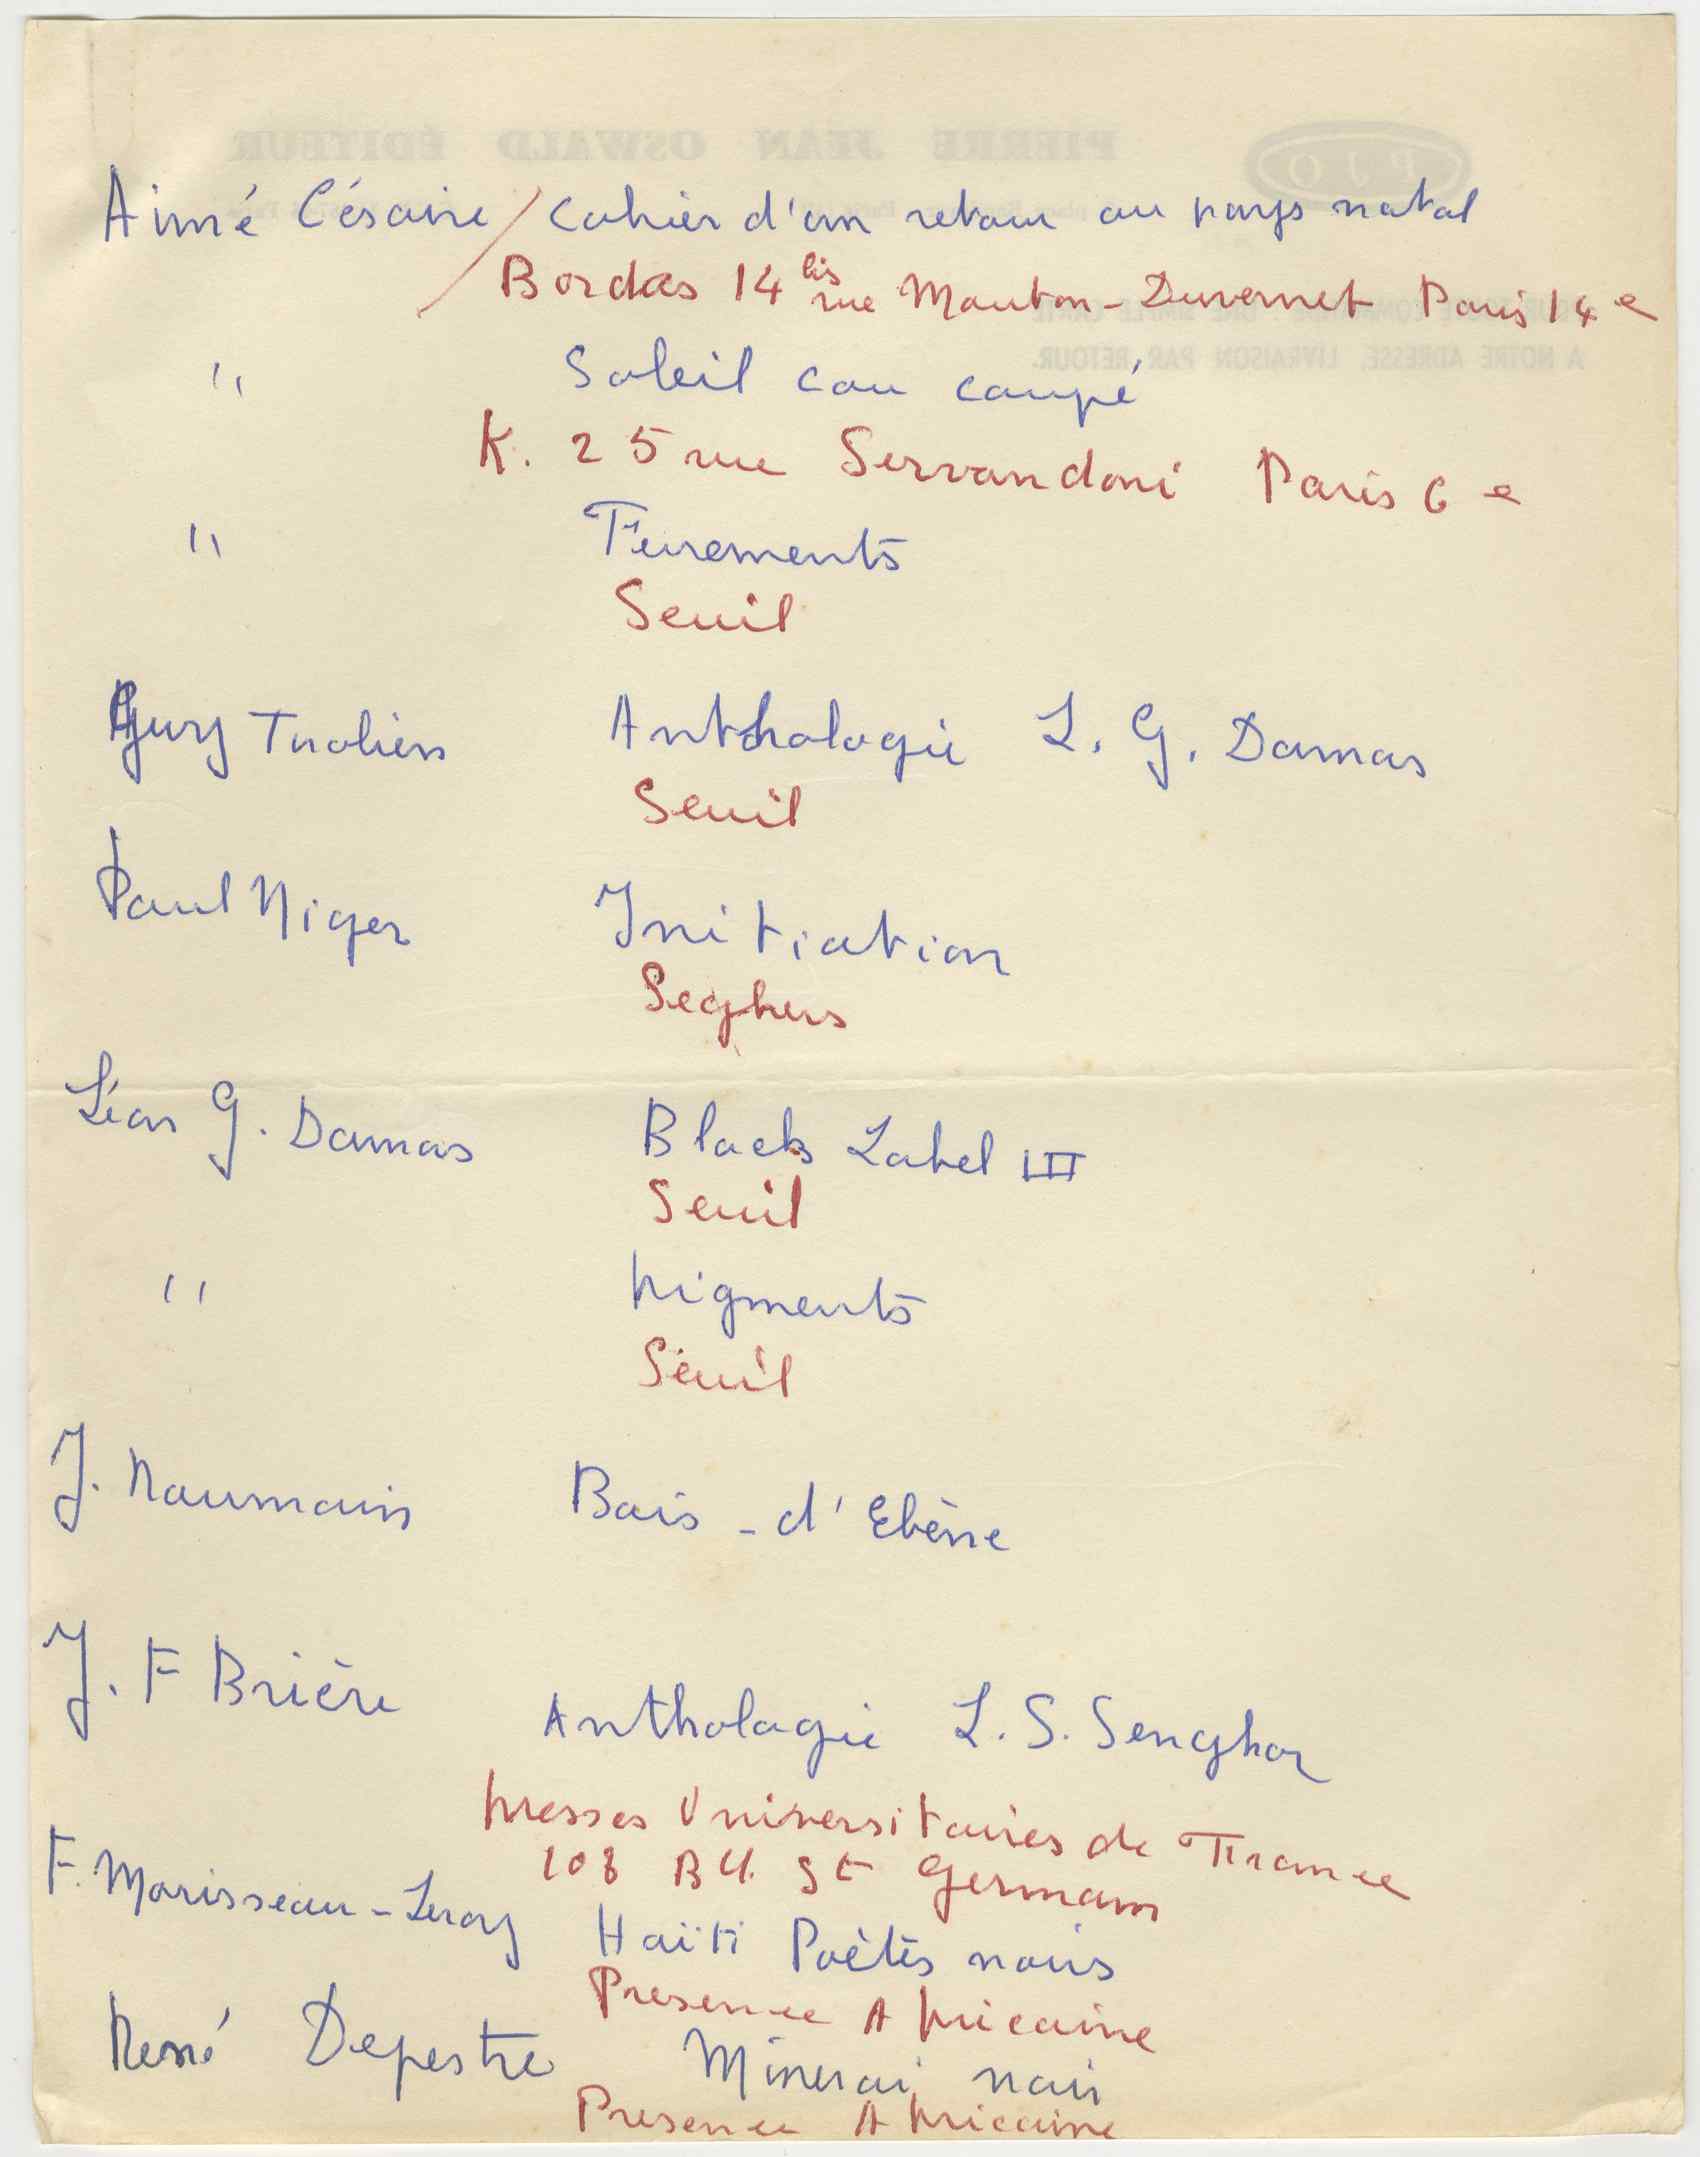 PIERRE JEAN OSWALD ÉDITEUR
PJO
Aimé Césaire / Cahier d'un retour au pays natal
Bordas 14 bis rue Mouton-Duvernet Paris 14e
A NOTRE ADRESSE, LIVRAISON PAR RETOUR.
" Soleil cou coupé
K. 25 rue Servandoni Paris 6e
" Ferrements
Seuil
Guy Tirolien Anthologie L. G. Damas
Seuil
Paul Niger Initiation
Seghers
Léon G. Damas Black Label III
Seuil
" Pigments
Seuil
J. Roumain Bois-d'Ebène
J. F Brière Anthologie L. S. Senghor
Presses Universitaires de France
108 Bd. St Germain
F. Morisseau-Leroy Haïti Poètes noirs
Presence Africaine
René Depestre Minerai noir
Presence Africaine